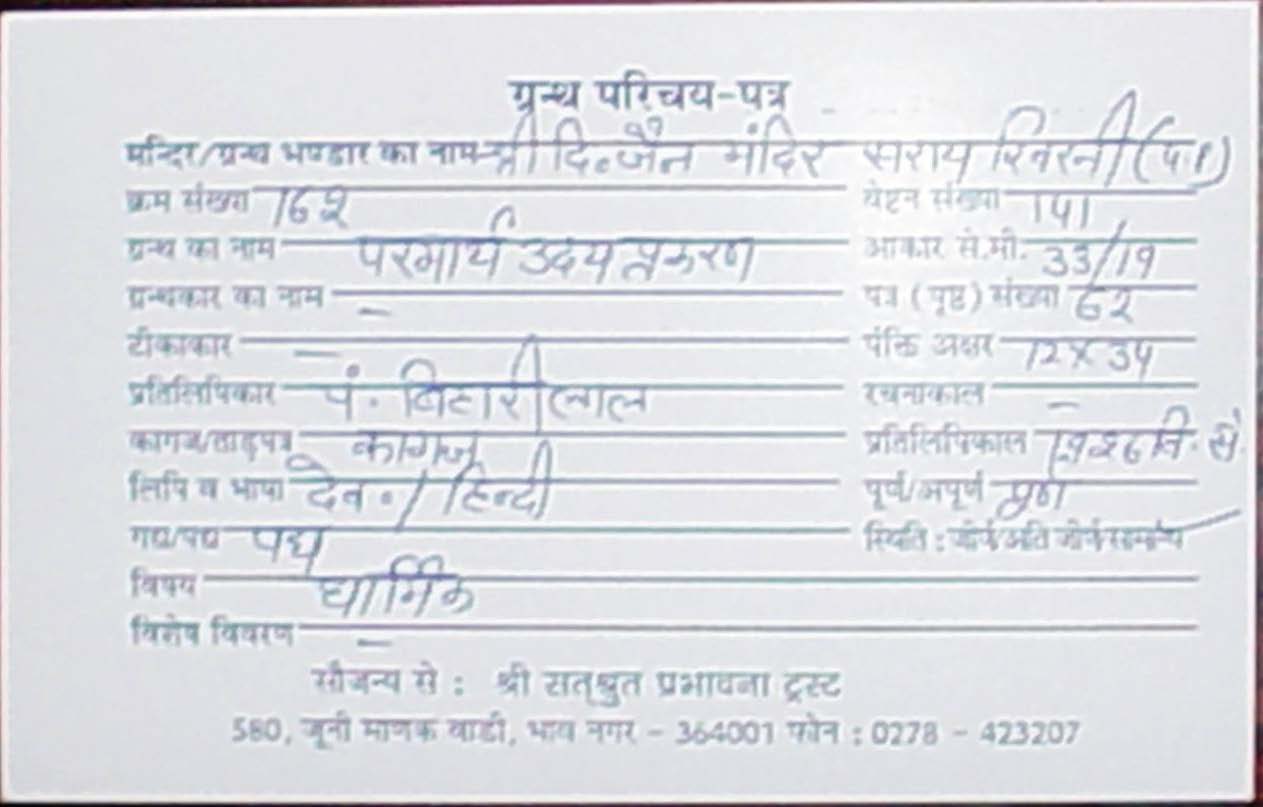 ग्रन्थ परिचय-पत्र
मन्दिर/ग्रन्थ भण्डार का नाम श्री दि. जैन मंदिर सराय
क्रम संख्या 762 वेष्टन संख्या 141
ग्रन्थ का नाम परमार्थ उदय प्रकरण आकार से.मी. 33/19
ग्रन्थकार का नाम — पत्र (पृष्ठ) संख्या 62
टीकाकार — पंक्ति अक्षर 12 x 34
प्रतिलिपिकार पं. बिहारीलाल रचनाकाल —
कागज/ताड़पत्र कागज प्रतिलिपिकाल
लिपि व भाषा देव. / हिन्दी पूर्ण/अपूर्ण पूर्ण
गद्य/पद्य पद्य स्थिति : जीर्ण/अति जीर्ण/सामान्य
विषय धार्मिक
विशेष विवरण —
सौजन्य से : श्री सत्श्रुत प्रभावना ट्रस्ट
580, जूनी माणक वाडी, भाव नगर - 364001 फोन : 0278 - 423207